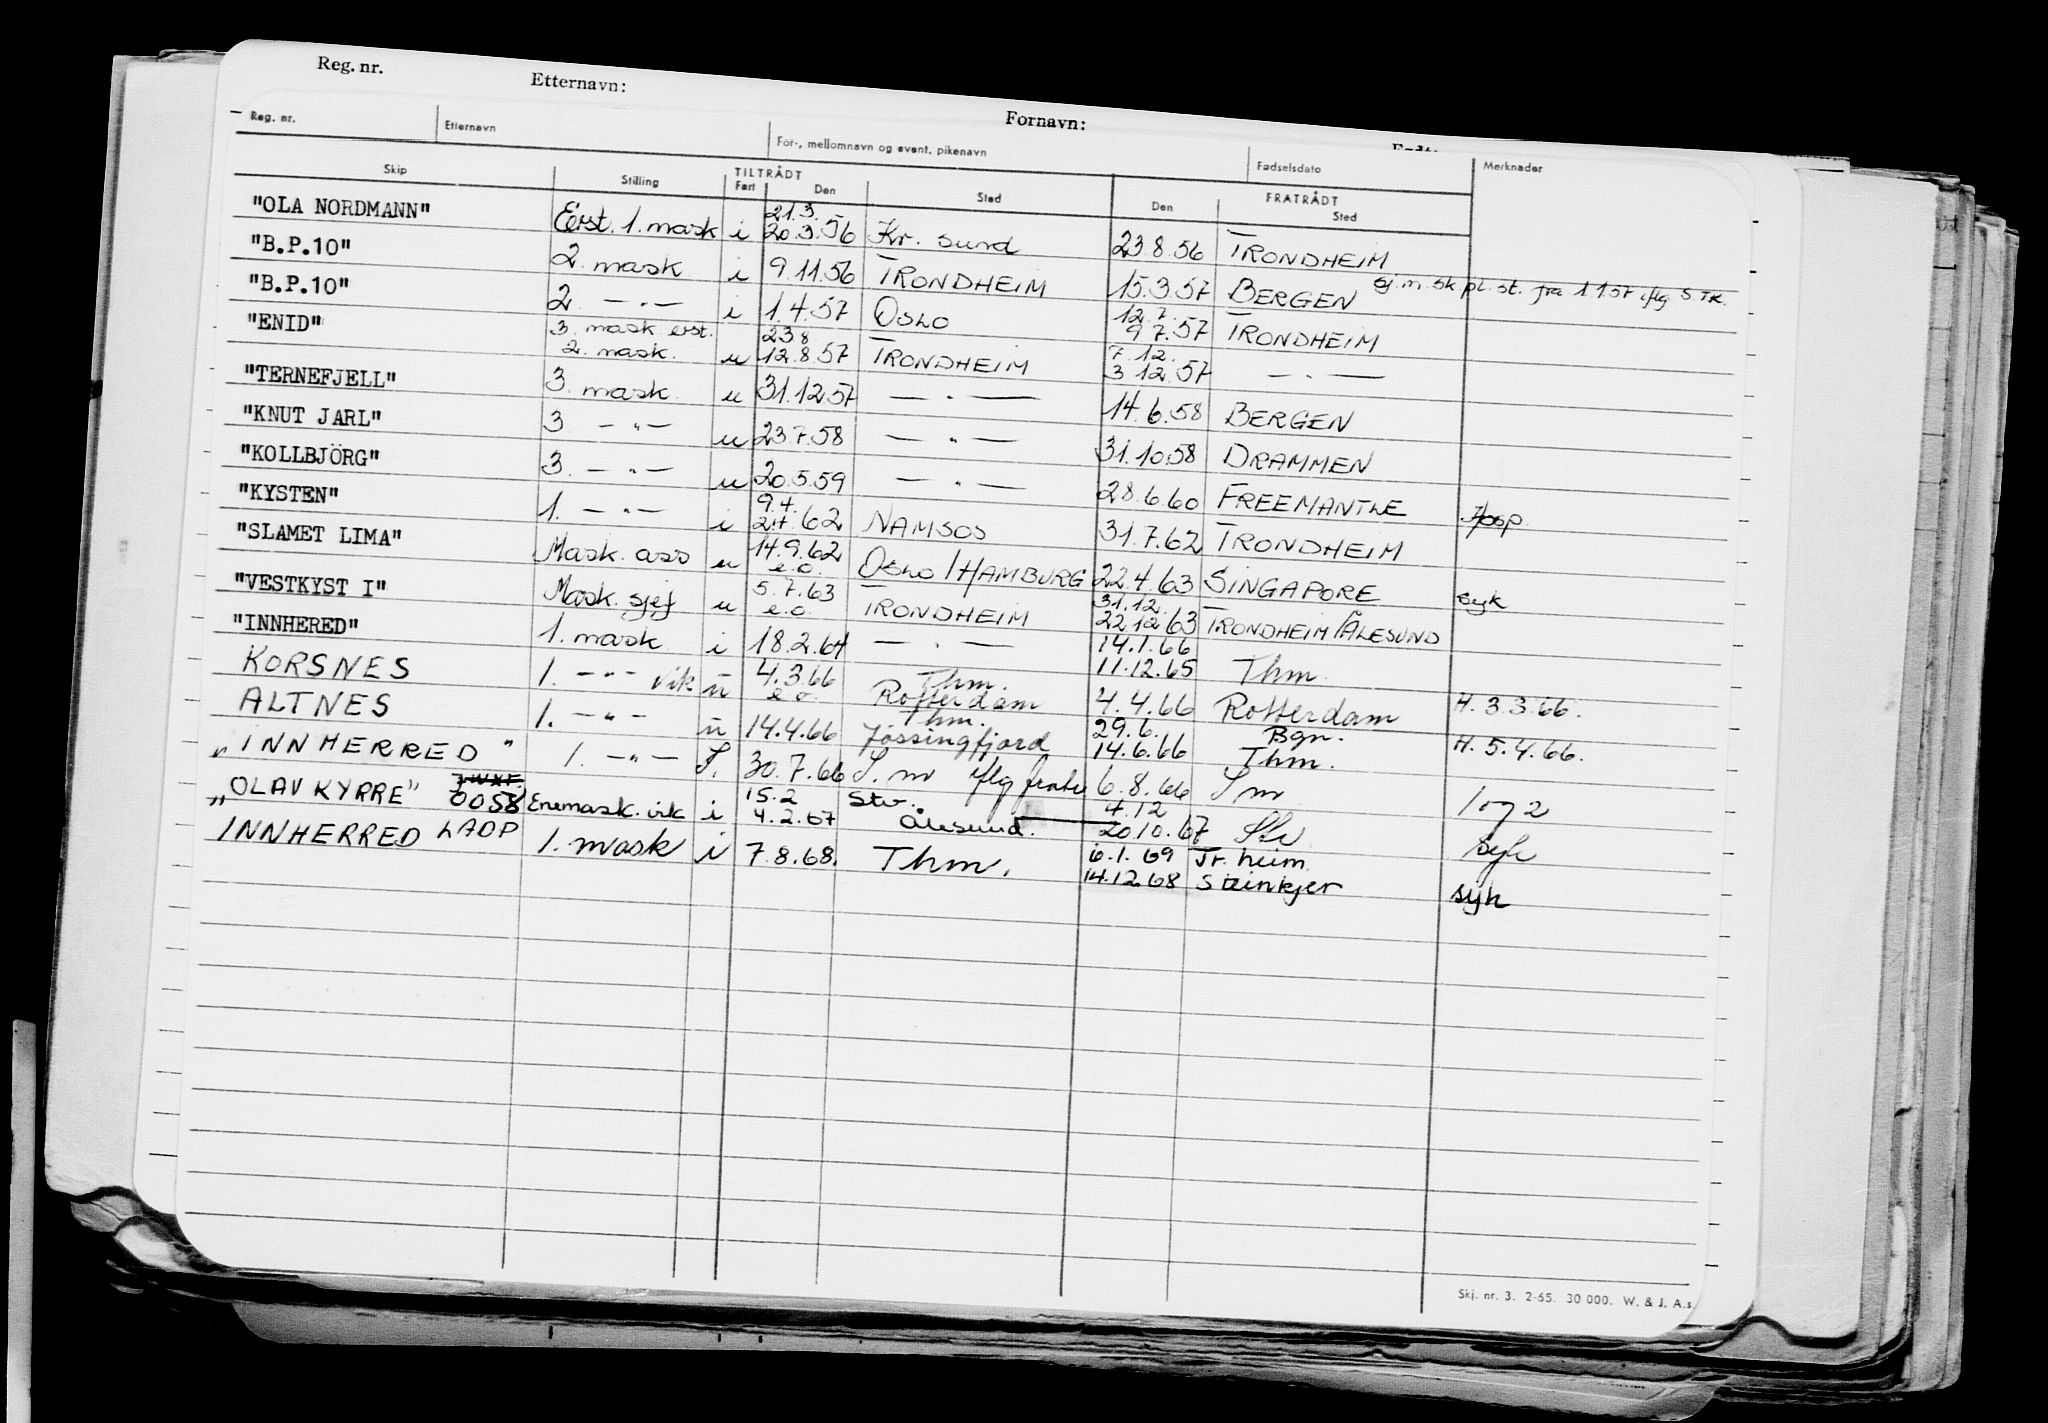 Reg. nr. Etternavn: Fornavn:
Reg. nr. Etternavn For-, mellomnavn og event. pikenavn Fødselsdato Merknader
Skip Stilling TILTRÅDT FRATRÅDT
Fart Den Sted Den Sted
21.3.
"OLA NORDMANN" Erst. 1. mask i 20.3.56 Kr. sund 23 8.56 TRONDHEIM
"B.P.10" 2. mask i 9.11.56 TRONDHEIM 15.3.57 BERGEN sj.m.sk pl. st. fra 1.1.57 iflg S.TR.
12.7.
"B.P.10" 2. — " — i 1.4.57 OSLO 9 7.57 TRONDHEIM
3. mask erst. 23 8 7.12.
"ENID" 2. mask. u 12.8.57 TRONDHEIM 3 12.57 — " —
"TERNEFJELL" 3. mask. u 31.12.57 — " — 14.6.58 BERGEN
"KNUT JARL" 3 — " — u 23.7.58 — " — 31.10.58 DRAMMEN
"KOLLBJÖRG" 3. — " — u 20.5.59 — " — 28.6.60 FREEMANTLE Hosp.
9.4.
"KYSTEN" 1. — " — i 2.4.62 NAMSOS 31.7.62 TRONDHEIM
"SLAMET LIMA" Mask. ass u 14.9.62 OSLO/HAMBURG 22.4.63 SINGAPORE syk
e.o.
5.7.63 31.12.
"VESTKYST I" Mask. sjef u e.o. TRONDHEIM 22.12.63 TRONDHEIM/ÅLESUND
14.1.66
"INNHERED" 1. mask i 18.2.64 — " — 11.12.65 Thm.
4.3.66 Thm.
KORSNES 1. — " — vik u e.o. Rotterdam 4.4.66 Rotterdam H. 3.3.66.
Thm. 29.6. Bgn.
ALTNES 1. — " — u 14.4.66 Jøssingfjord 14.6.66 Thm. H. 5.4.66.
"INNHERRED" 1. — " — 30.7.66 iflg 6.8.66 1 og 2
15.2 Stv. 4.12
"OLAV KYRRE" 0058 Enemask. vik i 4.2.67 Ålesund. 20.10.67 Syk
6.1.69 Tr.heim.
INNHERRED LADP 1. mask i 7.8.68. Thm. 14.12.68 Steinkjer syk
Skj. nr. 3. 2-65. 30 000. W. & J. A.s